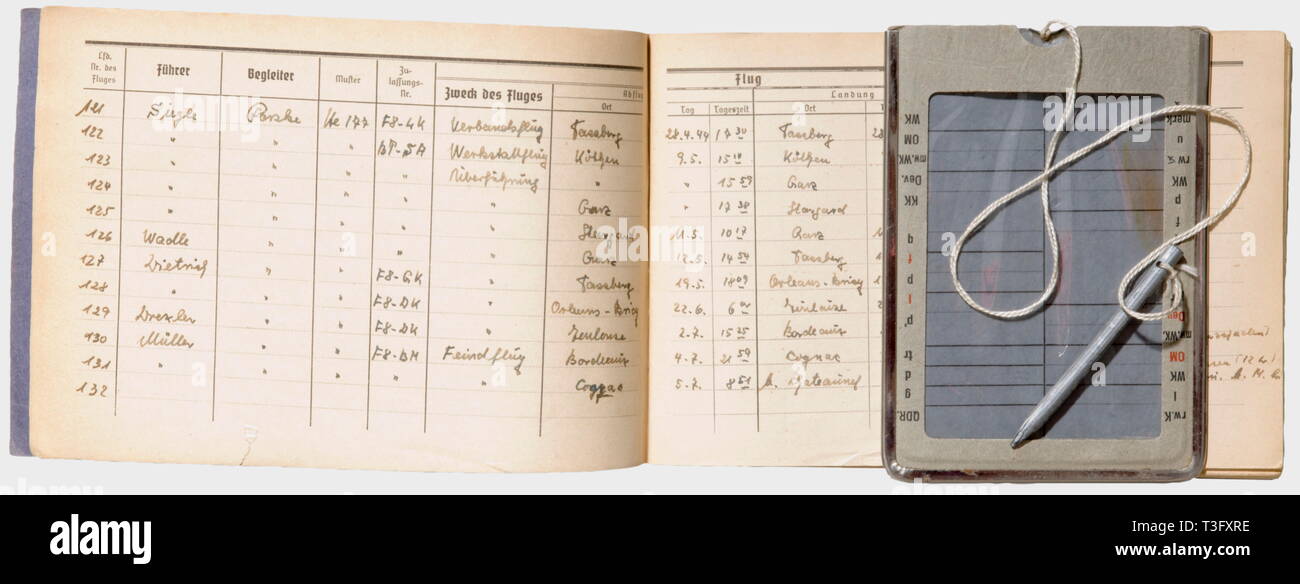 Lfd. Nr. des Fluges Führer Begleiter Muster Zulassungs-Nr. Zweck des Fluges Abflug Ort
Flug
Tag Tageszeit Landung Ort
121 Siegle Perske He 177 F8-4K Verbandsflug Fassberg 28.4.44 17 30 Fassberg 28
122 " " " BP-5A Werkstattflug Köthen 9.5. 15 10 Köthen
123 " " " " Überführung " " 15 59 Garz
124 " " " " " Garz " 17 38 Stargard
125 " " " " " Stargard 11.5. 10 17 Garz
126 Wadle " " " " Garz 12.5. 14 54 Fassberg
127 Dietrich " " F8-GK " Fassberg 19.5. 18 09 Orleans-Bricy
128 " " " F8-DK " Orleans-Bricy 22.6. Toulouse
129 Drexler " " F8-DK " Toulouse 2.7. 15 25 Bordeaux
130 Müller " " F8-BM Feindflug Bordeaux 4.7. 21 59 Cognac
131 " " " " " Cognac 5.7. 8 51
132
WK
OM
mw.WK.
Dev.
KK
q
f
p
l
p'
tr
d
g
QDR.
merk
u
rw.
WK
p
f
Dev
mw.WK.
OM
WK
l
rw.K
alamy
Image ID: T3FXRE
www.alamy.com